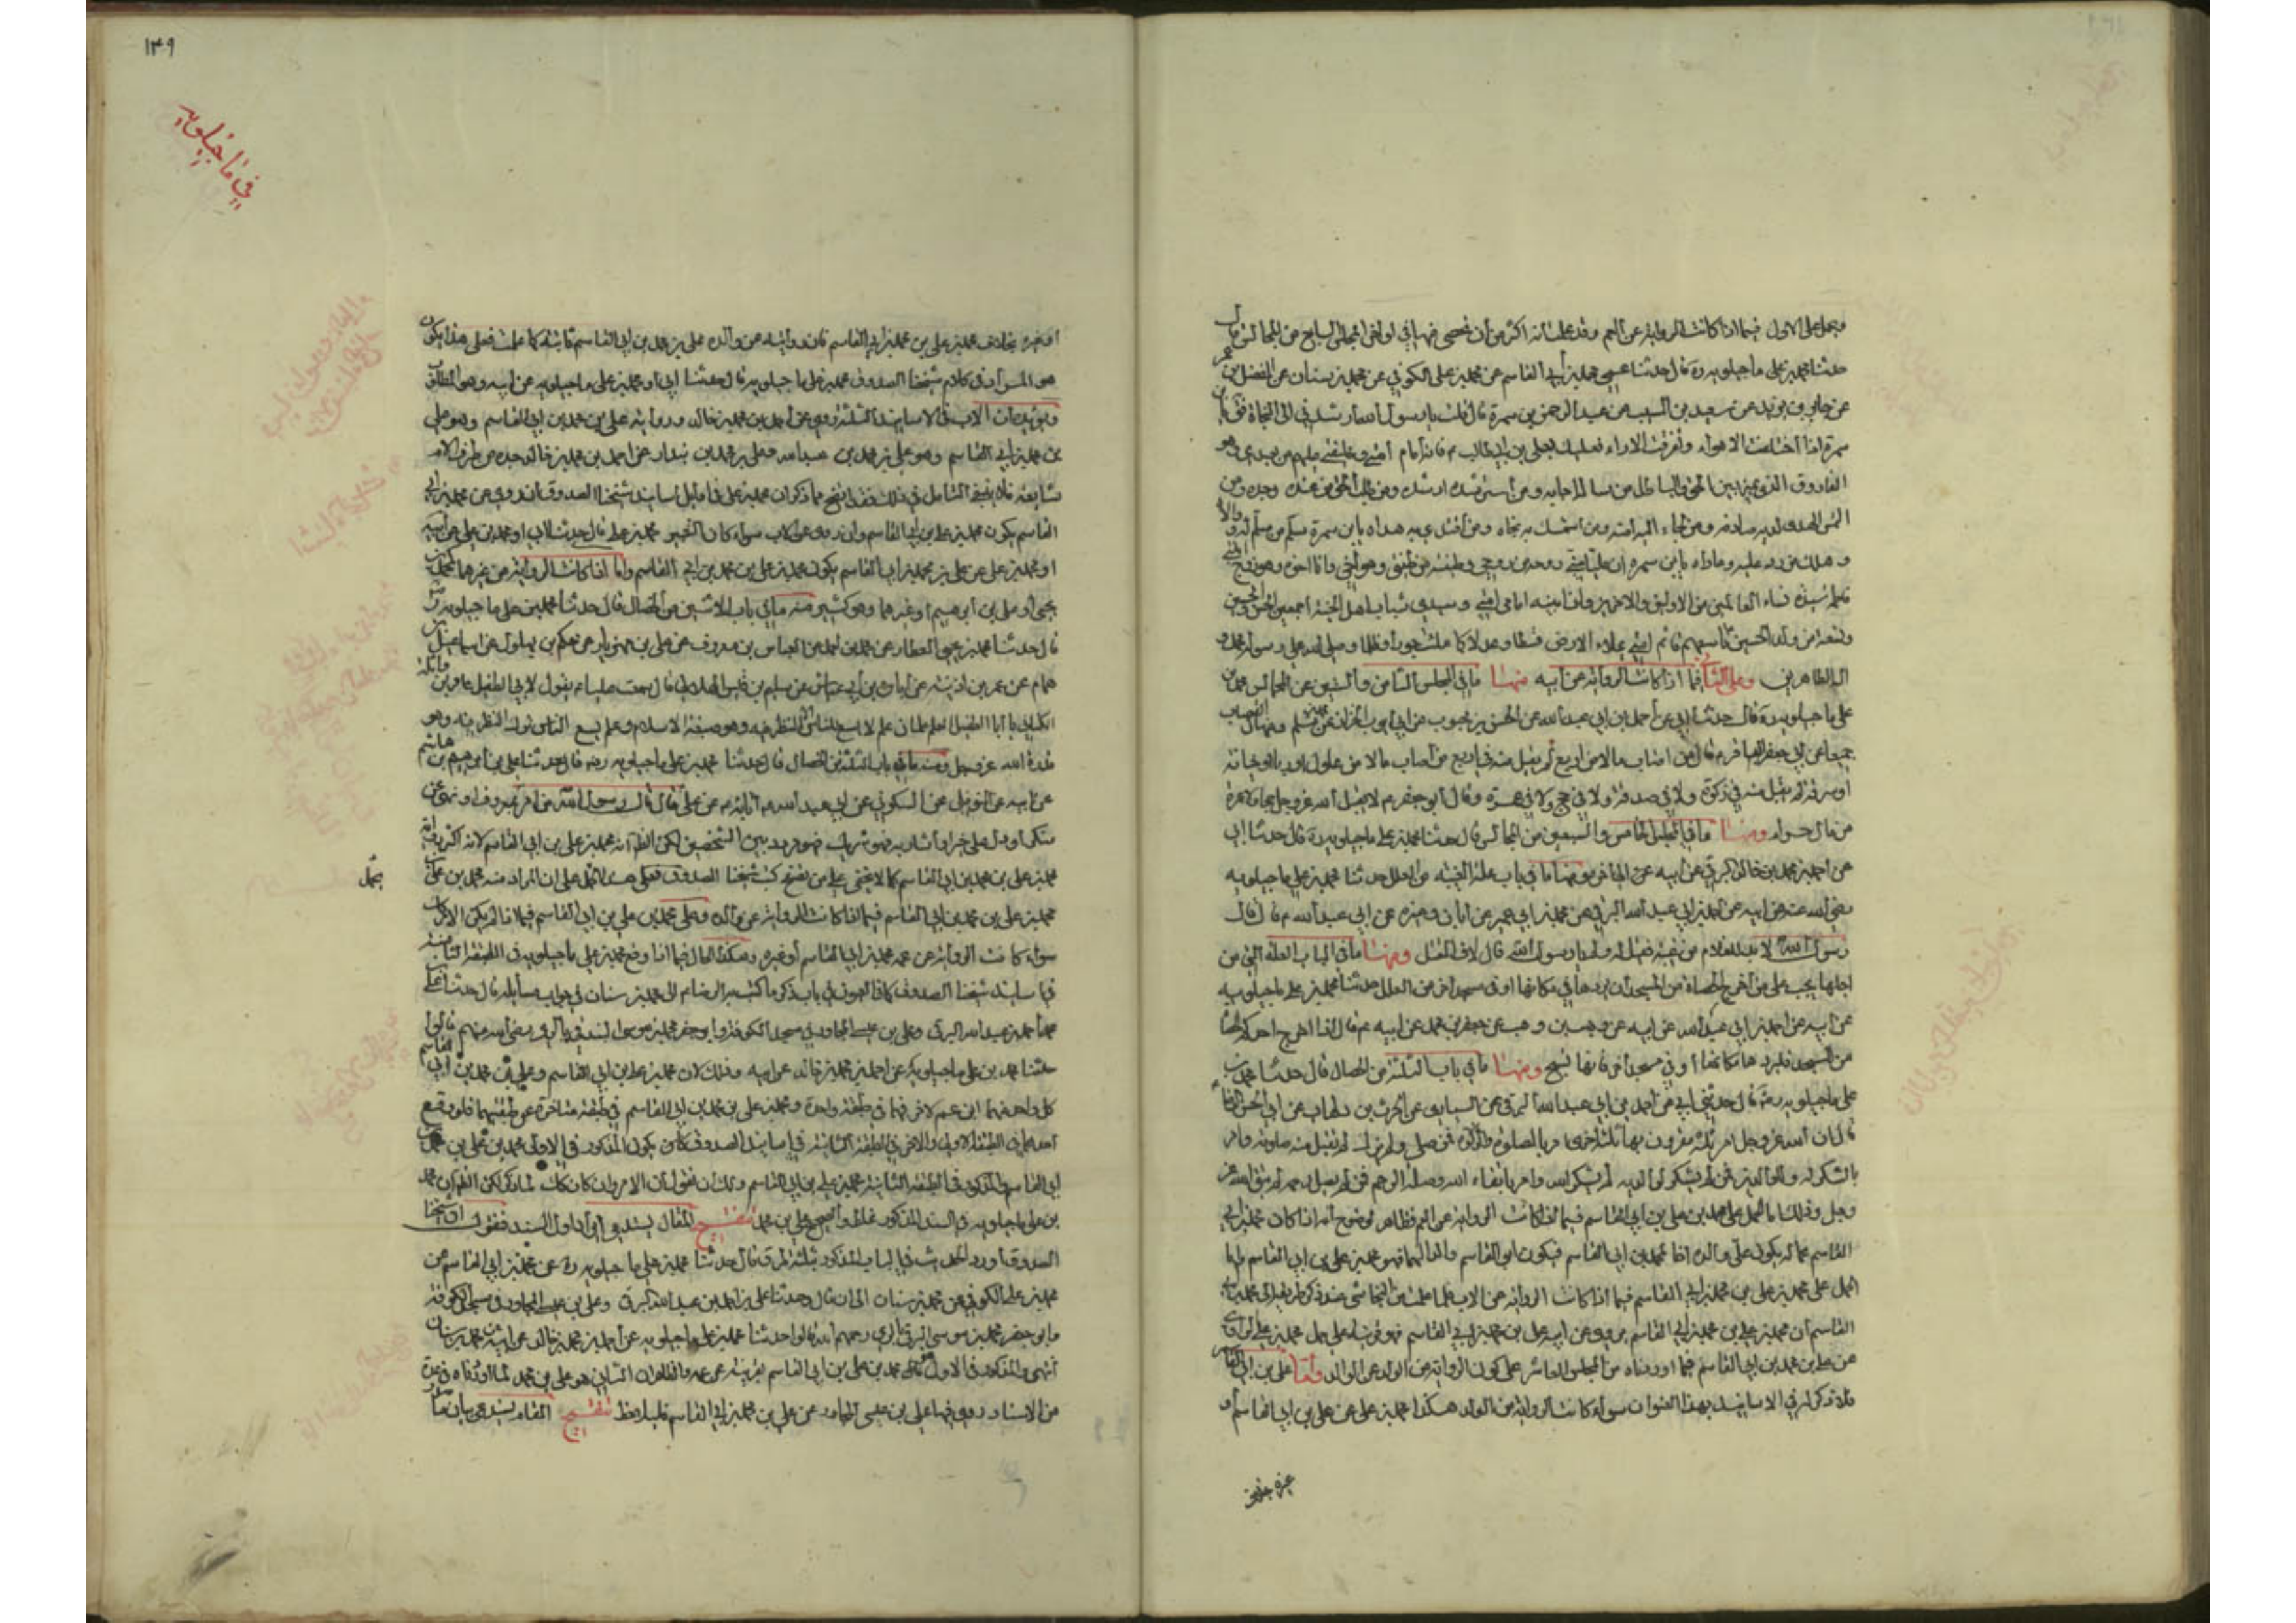 ويحمل على الاول فيما اذا كانت الرواية عن العم وقد علمت انه اكثر من أن تحصى فمنها في المجلس السابع من المجالس قال
حدثنا محمد بن علي ماجيلويه ره قال حدثنا عمي محمد بن أبي القاسم عن محمد بن علي الكوفي عن محمد بن سنان عن المفضل بن عمر
عن جابر بن يزيد عن سعيد بن المسيب عن عبد الرحمن بن سمرة قال قلت يا رسول الله ارشدني الى النجاة فقال يا بن
سمرة اذا اختلفت الاهواء وتفرقت الاراء فعليك بعلي بن أبي طالب ع فانه امام أمتي وخليفتي عليهم من بعدي وهو
الفاروق الذي يميز بين الحق والباطل من سأله اجابه ومن استرشده ارشده ومن طلب الحق من عنده وجده ومن
التمس الهدى لديه صادفه ومن لجاء اليه امنه ومن استمسك به نجاه ومن اقتدى به هداه يا بن سمرة سلم من سلم له ووالاه
وهلك من رد عليه وعاداه يا بن سمرة ان عليا مني روحه من روحي وطينته من طينتي وهو أخي وانا اخوه وهو زوج ابنتي
فاطمة سيدة نساء العالمين من الاولين والاخرين وان منه امامي امتي وسيدي شباب اهل الجنة اجمعين الحسن والحسين
وتسعة من ولد الحسين تاسعهم قائم امتي يملاء الارض قسطا وعدلا كما ملئت جورا وظلما وصلى الله على رسوله محمد و
اله الطاهرين وعلى الثاني فيما اذا كانت الرواية عن أبيه منها ما في المجلس الثامن والستين عن المجالس محمد بن
علي ماجيلويه ره قال حدثنا ابي عن أحمد بن ابي عبد الله عن الحسن بن محبوب عن ابي أيوب الخزاز عن محمد بن مسلم ومنهال القصاب
جميعا عن ابي جعفر الباقر ع قال من اصاب مالا من اربع لم يقبل منه في اربع من اصاب مالا من غلول او ربا او خيانة
أو سرقة لم يقبل منه في زكوة ولا في صدقة ولا في حج ولا في عمرة وقال أبو جعفر ع لا يقبل الله عز وجل حجا ولا عمرة
من مال حرام ومنها ما في المجلس الخامس والسبعين من المجالس قال حدثنا محمد بن علي ماجيلويه ره قال حدثنا ابي
عن احمد بن محمد بن خالد البرقي عن ابيه عن ومنها ما في باب علة الغيبة من العلل حدثنا محمد بن علي ماجيلويه
رضي الله عنه عن ابيه عن أحمد بن أبي عبد الله البرقي عن محمد بن أبي عمير عن أبان وغيره عن ابي عبد الله ع قال قال
رسول الله ص لا بد للغلام من غيبة فقيل له ولم يا رسول الله قال يخاف القتل ومنها ما في الباب العلة التي من
اجلها يجب على من أخرج الحصاة من المسجد أن يردها في مكانها او في مسجد اخر من العلل حدثنا محمد بن علي ماجيلويه
عن ابيه عن احمد بن ابي عبد الله عن ابيه عن وهب بن وهب عن جعفر بن محمد عن ابيه ع قال اذا اخرج احدكم الحصاة
من المسجد فليردها مكانها أو في مسجد أخر فانها تسبح ومنها ما في باب الثلثة من الخصال قال حدثنا محمد بن
علي ماجيلويه رضه قال حدثني ابي عن أحمد بن ابي عبد الله البرقي عن السياري عن الحرث بن دلهاث عن ابي الحسن الرضا ع
قال ان الله عز وجل امر بثلثة مقرون بها ثلثة اخرى امر بالصلوة والزكوة فمن صلى ولم يزك لم تقبل منه صلوته وامر
بالشكر له وللوالدين فمن لم يشكر لوالديه لم يشكر الله وامر باتقاء الله وصلة الرحم فمن لم يصل رحمه لم يتق الله عز
وجل وذلك اما الحمل على محمد بن علي بن ابي القاسم فيما اذا كانت الرواية عن العم فظاهر لوضوح أنه اذا كان محمد بن أبي
القاسم عما له يكون علي والده اخا لمحمد بن ابي القاسم فيكون ابو القاسم والدا لهما فهو محمد بن علي بن ابي القاسم واما
الحمل على محمد بن علي بن محمد بن أبي القاسم فيما اذا كانت الرواية عن الاب فلما علمت من النجاشي عند ذكر طريقه الى محمد بن أبي
القاسم أن محمد بن علي بن محمد بن أبي القاسم يروي عن أبيه علي بن محمد بن ابي القاسم فهو قرينة على حمل محمد بن علي الراوي
عن علي بن محمد بن ابي القاسم فيما اوردناه من المجلس العاشر على كون الرواية من الولد عن الوالد واما علي بن ابي القاسم
فلا ذكر له في الاسانيد بهذا العنوان سواء كانت الرواية من الولد هكذا محمد بن علي عن علي بن ابي القاسم أو
١٣٩
في ماجيلويه
أو غيره بخلاف محمد بن علي بن محمد بن أبي القاسم فان روايته عن والده علي بن محمد بن ابي القاسم ثابتة كما علمت فعلى هذا يكون
هو المراد في كلام شيخنا الصدوق محمد بن علي ماجيلويه قال حدثنا ابي او محمد بن علي ماجيلويه عن ابيه وهو المطلوب
ويؤيده ان الاب في الاسانيد الثلثة روى عن أحمد بن محمد بن خالد ورواية علي بن محمد بن ابي القاسم وهو علي
بن محمد بن أبي القاسم وهو علي بن محمد بن عبد الله وعلي بن محمد بن بندار عن احمد بن محمد بن خالد جده من طرف الام
شايعة فلا ينبغي التأمل في ذلك فقد اتضح مما ذكر ان محمد بن علي في اوائل أسانيد شيخنا الصدوق ان روى عن محمد بن أبي
القاسم يكون محمد بن علي بن أبي القاسم وان روى عن الاب سواء كان التعبير محمد بن علي قال حدثنا ابي او محمد بن علي عن أبيه
او محمد بن علي عن علي بن محمد بن ابي القاسم يكون محمد بن علي بن محمد بن ابي القاسم واما اذا كانت الرواية عن غيرهما كمحمد بن
يحيى أو علي بن أبرهيم أو غيرهما وهو كثير منه ما في باب الاثنين من الخصال قال حدثنا محمد بن علي ماجيلويه رضه
قال حدثنا محمد بن يحيى العطار عن محمد بن احمد عن العباس بن معروف عن علي بن مهزيار عن حكم بن بهلول عن اسماعيل بن
همام عن عمر بن اذينة عن أبان بن أبي عياش عن سليم بن قيس الهلالي قال سمعت عليا ع يقول لابي الطفيل عامر بن واثلة
الكناني يا أبا الطفيل العلم علمان علم لا يسع الناس الا النظر فيه وهو صبغة الاسلام وعلم يسع الناس ترك النظر فيه وهو
قدرة الله عز وجل ومنه ما في باب الثلثة من الخصال قال حدثنا محمد بن علي ماجيلويه رضه قال حدثنا علي بن أبرهيم بن هاشم
عن ابيه عن النوفلي عن السكوني عن ابي عبد الله عن آبائه ع عن علي ع قال قال رسول الله ص من امر بمعروف او نهى عن
منكر أو دل على خير أو أشار به فهو شريك فهو مردد بين الشخصين لكن الظ أنه محمد بن علي بن ابي القاسم لانه اكثر رواية
محمد بن علي بن محمد بن ابي القاسم كما لا يخفى على من تصفح كتب شيخنا الصدوق فعلى هذا يحمل على ان المراد منه محمد بن علي
يحمل
محمد بن علي بن محمد بن ابي القاسم فيما اذا كانت الرواية عن والده وعلى محمد بن علي بن ابي القاسم فيما اذا لم يكن الامر كذلك
سواء كانت الرواية عن عمه محمد بن ابي القاسم أو غيره وهكذا الحال فيما اذا وقع محمد بن علي ماجيلويه في الطبقة الثانية
في أسانيد شيخنا الصدوق كما في العيون في باب ذكر ما كتب به الرضا ع الى محمد بن سنان في جواب مسائله قال حدثنا علي بن
احمد بن عبد الله البرقي وعلي بن عيسى المجاور في مسجد الكوفة وأبو جعفر محمد بن موسى البرقي بالري رضي الله عنهم قالوا
حدثنا محمد بن علي ماجيلويه عن احمد بن محمد بن خالد عن ابيه وذلك لان محمد بن علي بن ابي القاسم وعلي بن محمد بن أبي القاسم
كل واحد منهما ابن عم لاخر فهما في طبقة واحدة ومحمد بن علي بن محمد بن ابي القاسم في طبقة متاخرة عن طبقتهما فلو وقع
احدهما في الطبقة الاولى والاخر في الطبقة الثانية في اسانيد الصدوق كان يكون المذكور في الاولى محمد بن علي بن محمد بن
ابي القاسم والمذكور في الطبقة الثانية محمد بن علي بن ابي القاسم ولك ان تقول أن الامر وان كان كك لما ذكر لكن الظ ان محمد
بن علي ماجيلويه في السند المذكور غلط والصحيح علي بن محمد تنقيح المقال يستدعي أن نداول السند فنقول ان شيخنا
الصدوق أورد الحديث في الباب المذكور بثلثة طرق قال حدثنا محمد بن علي ماجيلويه ره عن محمد بن ابي القاسم عن
محمد بن علي الكوفي عن محمد بن سنان الى ان قال وحدثنا علي بن احمد بن عبد الله البرقي وعلي بن عيسى المجاور في مسجد الكوفة
وابو جعفر محمد بن موسى البرقي بالري رحمهم الله قالوا حدثنا محمد بن علي ماجيلويه عن أحمد بن محمد بن خالد عن ابيه عن محمد بن سنان
انتهى والمذكور في الاول محمد بن علي بن ابي القاسم بقرينة عن عمه والظاهر ان الثاني هو علي بن محمد لما اوردناه في عدة
من الاسناد روى فيها علي بن عيسى المجاور عن علي بن محمد بن أبي القاسم فليلاحظ تنقيح المقام يستدعي بيان